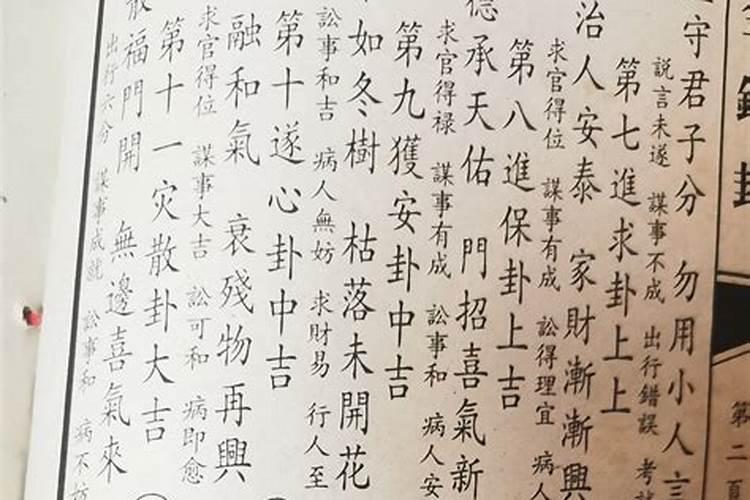 守君子分　勿用小人言
說言未遂　謀事不成　出行錯誤　考
第七進求卦上上
治人安泰　家財漸漸興
求官得位　謀事有成　訟得理宜　病人
第八進保卦上吉
德承天佑　門招喜氣新
求官得祿　謀事有成　訟事和　病人安
第九獲安卦中吉
如冬樹　枯落未開花
訟事和吉　病人無妨　求財易　行人至
第十遂心卦中吉
融和氣　衰殘物再興
求官得位　謀事大吉　訟可和　病即愈
第十一灾散卦大吉
散福門開　無邊喜氣來
出行六分　謀事成就　訟事和　病不妨
第二頁